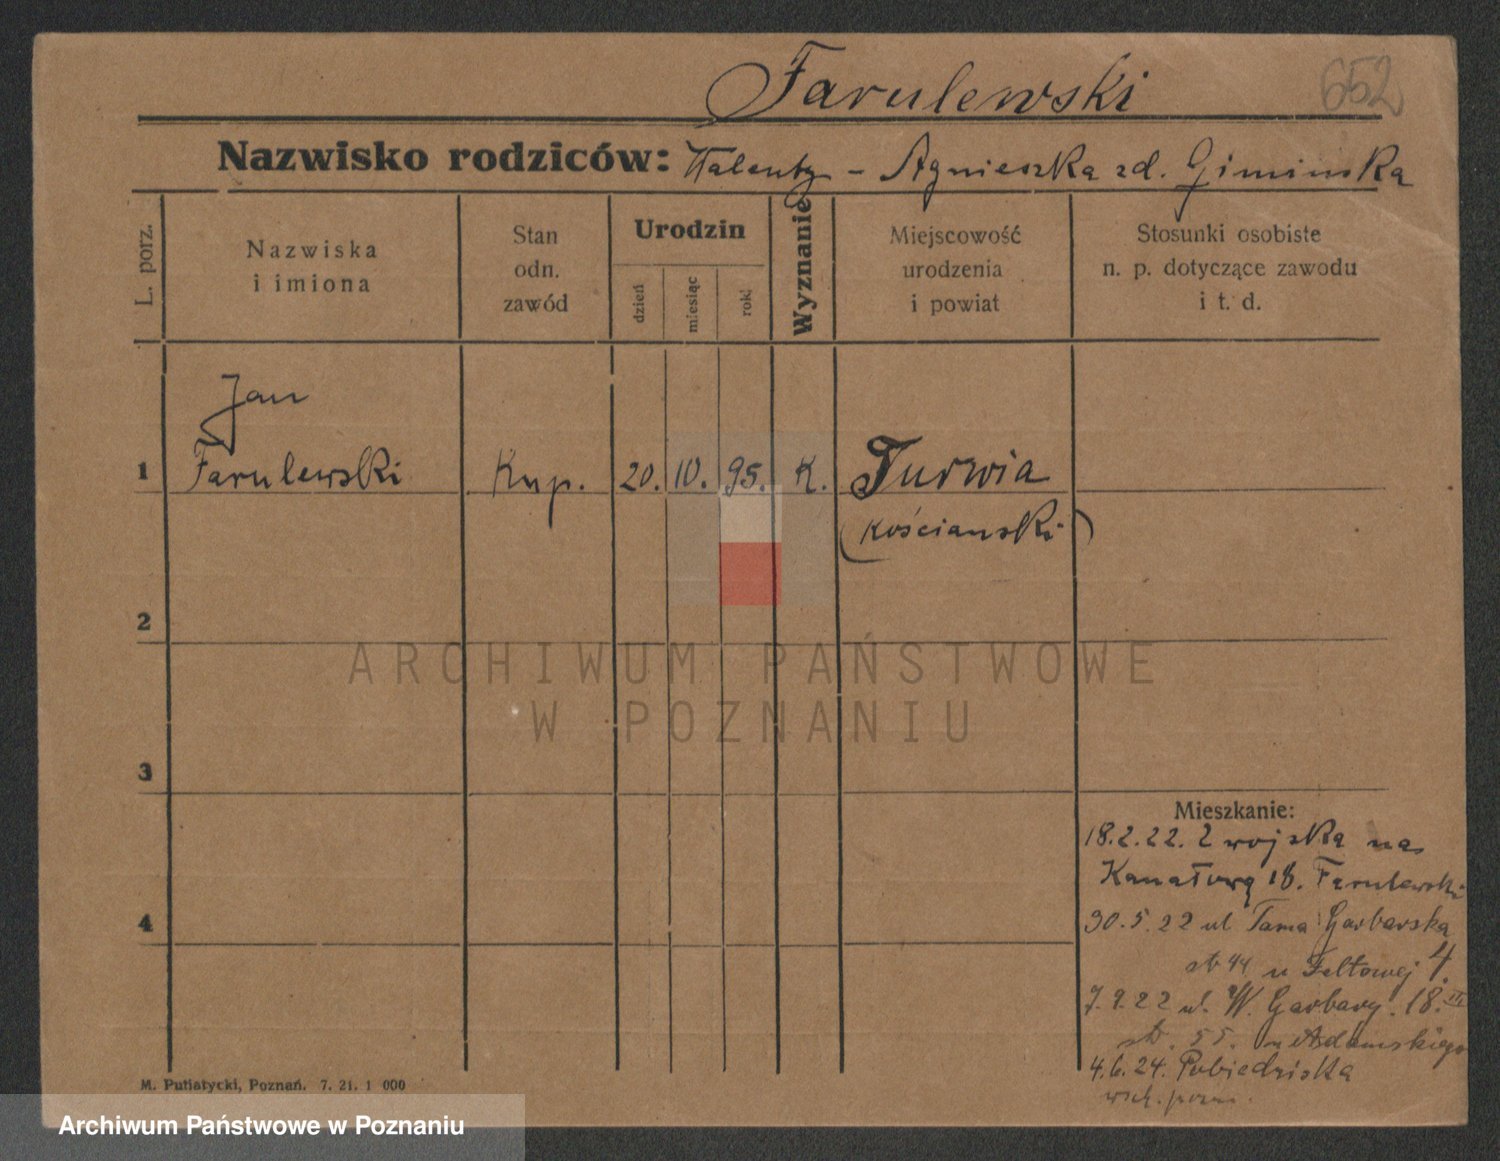 Farulewski
652
Nazwisko rodziców: Walenty - Agnieszka zd. Gimińska
L. porz.
Nazwiska
i imiona
Stan
odn.
zawód
Urodzin
dzień
miesiąc
rok
Wyznanie
Miejscowość
urodzenia
i powiat
Stosunki osobiste
n. p. dotyczące zawodu
i t. d.
Jan
1 Farulewski Kup. 20. 10. 95. K. Turwia
(kościański)
2
ARCHIWUM PAŃSTWOWE
W POZNANIU
3
Mieszkanie:
18.2.22. Z wojska na
Kanałową 18. Farulewski
4
30.5.22 ul Tama Garbarska
str 44 u Feltowej 4.
7.9.22 ul. W. Garbary. 18. III
str. 55. u Adamskiego
4.6.24. Pobiedziska
wsch.
M. Putiatycki, Poznań. 7. 21. 1 000
Archiwum Państwowe w Poznaniu